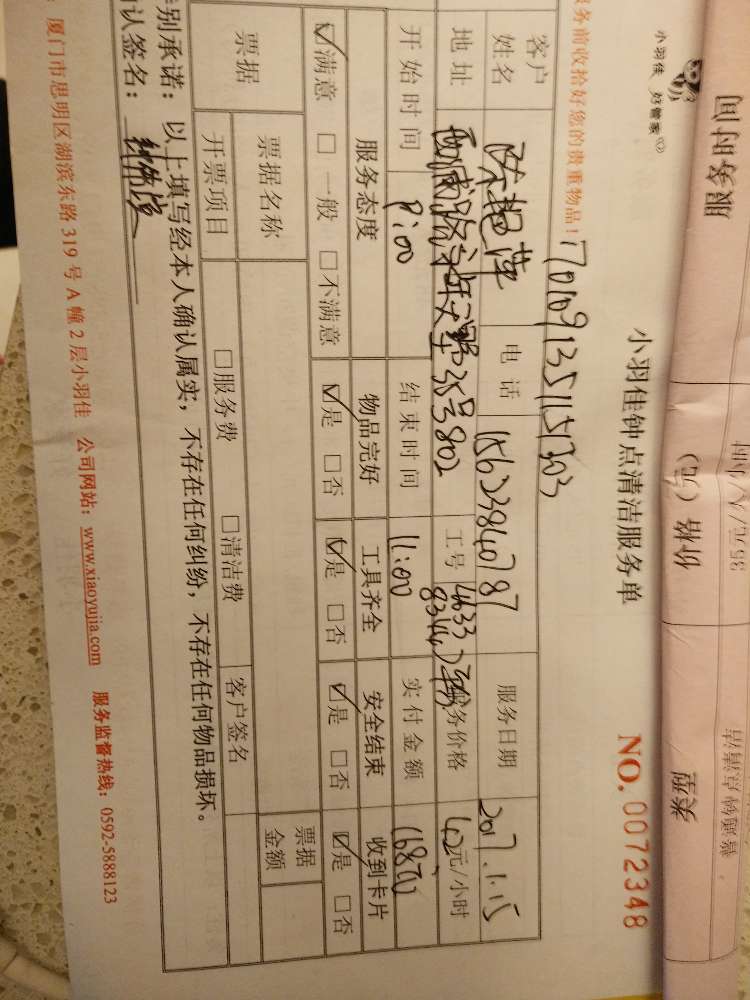 服务时间
价格（元）
小羽佳 好管家
小羽佳钟点清洁服务单
NO. 0072348
务前收拾好您的贵重物品！
701091351151303
客户姓名 陈艳萍 电话 15623840787 服务日期 2017.1.15
地址 35号802 工号 4633 服务价格 42元/小时
8344
开始时间 9:00 结束时间 11:00 实付金额 168元
服务态度 物品完好 工具齐全 安全结束 收到卡片
☑满意 □一般 □不满意 ☑是 □否 ☑是 □否 ☑是 □否 ☑是 □否
票据 票据名称 票据金额
开票项目 □服务费 □清洁费 客户签名
别承诺：以上填写经本人确认属实，不存在任何纠纷，不存在任何物品损坏。
认签名：
厦门市思明区湖滨东路 319 号 A 幢 2 层小羽佳 公司网站：www.xiaoyujia.com 服务监督热线：0592-5888123